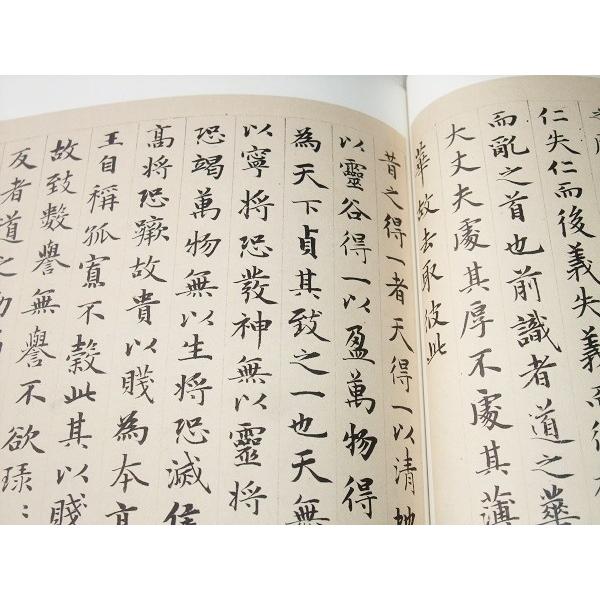 仁失仁而後義失義而後
而亂之首也前識者道之華
大丈夫處其厚不處其薄
華故去取彼此
昔之得一者天得一以清地
以靈谷得一以盈萬物得
為天下貞其致之一也天無
以寧將恐發神無以靈將
恐竭萬物無以生將恐滅侯
高將恐蹶故貴以賤為本高
王自稱孤寡不穀此其以賤
故致數譽無譽不欲琭：
反者道之動